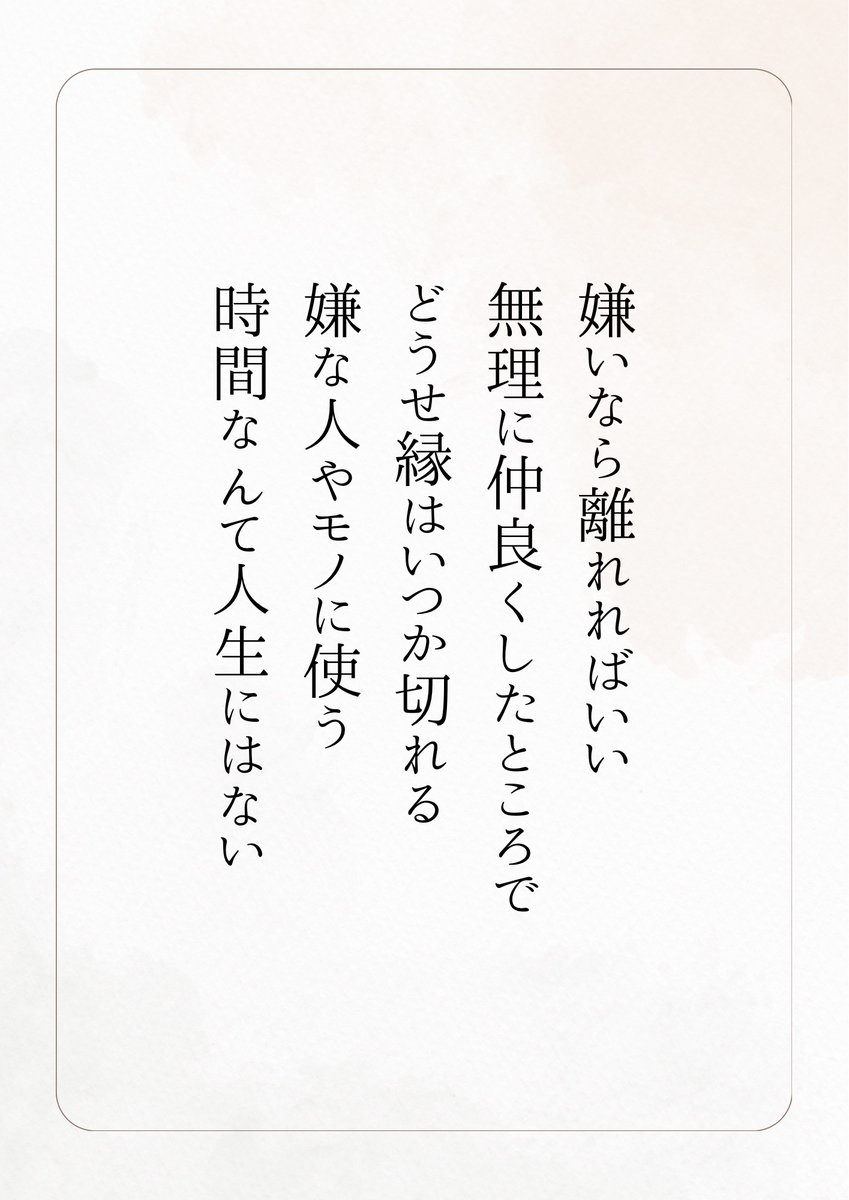 嫌いなら離れればいい
無理に仲良くしたところで
どうせ縁はいつか切れる
嫌な人やモノに使う
時間なんて人生にはない